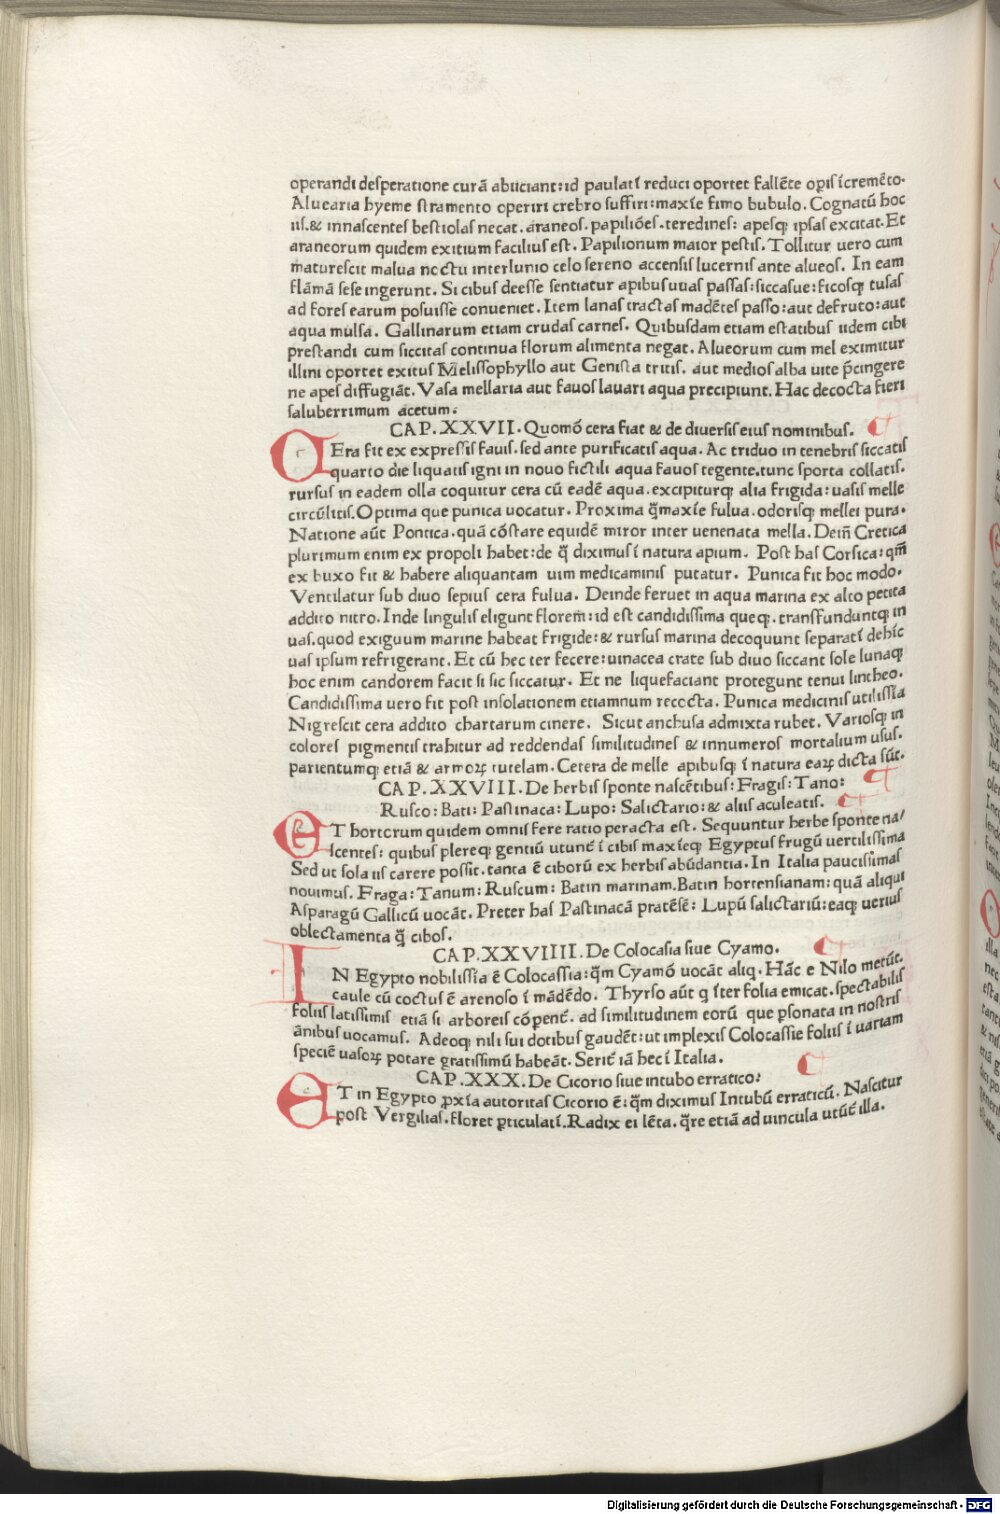 operandi desperatione curā abiiciant:id paulatī reduci oportet fallēte opis īcremēto.
Aluearia hyeme stramento operiri crebro suffiri:maxīe fimo bubulo. Cognatū hoc
iis.& innascentes bestiolas necat. araneos. papiliōes. teredines: apesq; ipsas excitat. Et
araneorum quidem exitium facilius est. Papilionum maior pestis. Tollitur uero cum
maturescit malua noctu interlunio celo sereno accensis lucernis ante alueos. In eam
flāmā sese ingerunt. Si cibus deesse sentiatur apibus uuas passas:siccasue:ficosq; tusas
ad fores earum posuisse conueniet. Item lanas tractas madētes passo:aut defruto:aut
aqua mulsa. Gallinarum etiam crudas carnes. Quibusdam etiam estatibus iidem cibi
prestandi cum siccitas continua florum alimenta negat. Alueorum cum mel eximitur
illini oportet exitus Melissophyllo aut Genista tritis. aut medios alba uite p̄cingere
ne apes diffugiāt. Vasa mellaria aut fauos lauari aqua precipiunt. Hac decocta fieri
saluberrimum acetum.
CAP. XXVII. Quomō cera fiat & de diuersis eius nominibus.
CEra fit ex expressis fauis. sed ante purificatis aqua. Ac triduo in tenebris siccatis
quarto die liquatis igni in nouo fictili aqua fauos tegente. tunc sporta collatis.
rursus in eadem olla coquitur cera cū eadē aqua. excipiturq; alia frigida: uasis melle
circūlitis. Optima que punica uocatur. Proxima q̄maxīe fulua. odorisq; mellei pura.
Natione aūt Pontica. quā cōstare equidē miror inter uenenata mella. Deiñ Cretica
plurimum enim ex propoli habet: de q̄ diximus ī natura apium. Post has Corsica: qm̄
ex buxo fit & habere aliquantam uim medicaminis putatur. Punica fit hoc modo.
Ventilatur sub diuo sepius cera fulua. Deinde feruet in aqua marina ex alto petita
addito nitro. Inde lingulis eligunt florem̄: id est candidissima queq;. transfunduntq; in
uas. quod exiguum marine habeat frigide: & rursus marina decoquunt separatī dehīc
uas ipsum refrigerant. Et cū hec ter fecere: uinacea crate sub diuo siccant sole lunaq;
hoc enim candorem facit si sic siccatur. Et ne liquefaciant protegunt tenui lintheo.
Candidissima uero fit post insolationem etiamnum recocta. Punica medicinis utilissīa
Nigrescit cera addito chartarum cinere. Sicut anchusa admixta rubet. Variosq; in
colores pigmentis trahitur ad reddendas similitudines & innumeros mortalium usus.
parientumq; etiā & armoꝝ tutelam. Cetera de melle apibusq; ī natura eaꝝ dicta sūt.
CAP. XXVIII. De herbis sponte nascētibus: Fragis: Tano:
Rusco: Bati: Pastinaca: Lupo: Salictario: & aliis aculeatis.
ET hortorum quidem omnis fere ratio peracta est. Sequuntur herbe sponte na/
scentes: quibus plereq; gentiū utunt̄ ī cibis maxīeq; Egyptus frugū uertilissima
Sed ut sola iis carere possit. tanta ē ciborū ex herbis abūdantia. In Italia paucissimas
nouimus. Fraga: Tanum: Ruscum: Batin marinam. Batin hortensianam: quā aliqui
Asparagū Gallicū uocāt. Preter has Pastinacā pratēsē: Lupū salictariū: eaq; uerius
oblectamenta q̄ cibos.
CAP. XXVIIII. De Colocasia siue Cyamo.
IN Egypto nobilissīa ē Colocassia: qm̄ Cyamō uocāt aliq. Hāc e Nilo metūt.
caule cū coctus ē arenoso ī mādēdo. Thyrso aūt q īter folia emicat. spectabilis
foliis latissimis etiā si arboreis cōpent̄. ad similitudinem eorū que psonata in nostris
ānibus uocamus. Adeoq; nili sui dotibus gaudēt: ut implexis Colocassie foliis ī uariam
speciē uasoꝝ potare gratissimū habeāt. Serit̄ iā hec ī Italia.
CAP. XXX. De Cicorio siue intubo erratico:
ET in Egypto ꝓxīa autoritas Cicorio ē: qm̄ diximus Intubū erraticū. Nascitur
post Vergilias. floret ꝑticulatī. Radix ei lēta. q̄re etiā ad uincula utūt̄ illa.
Digitalisierung gefördert durch die Deutsche Forschungsgemeinschaft - DFG